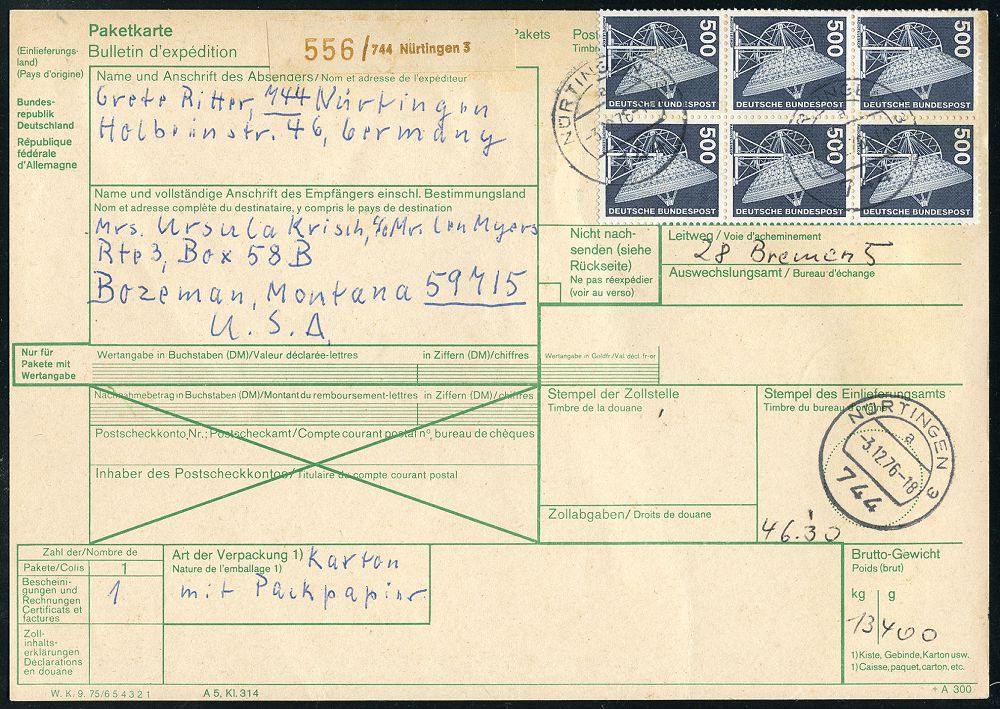 Paketkarte
Bulletin d'expédition
(Einlieferungs-
land)
(Pays d'origine)
Bundes-
republik
Deutschland
République
fédérale
d'Allemagne
556/744 Nürtingen 3
Pakets
Post
Timbre
Name und Anschrift des Absenders/Nom et adresse de l'expéditeur
Grete Ritter, 744 Nürtingen
Holbeinstr. 46, Germany
500
DEUTSCHE BUNDESPOST
500
DEUTSCHE BUNDESPOST
500
DEUTSCHE BUNDESPOST
500
DEUTSCHE BUNDESPOST
500
DEUTSCHE BUNDESPOST
500
DEUTSCHE BUNDESPOST
NÜRTINGEN
Name und vollständige Anschrift des Empfängers einschl. Bestimmungsland
Nom et adresse complète du destinataire, y compris le pays de destination
Mrs. Ursula Krisch, c/o Mr. Len Myers
Rte 3, Box 58 B
Bozeman, Montana 59715
U. S. A.
Nicht nach-
senden (siehe
Rückseite)
Ne pas réexpédier
(voir au verso)
Leitweg/Voie d'acheminement
28 Bremen 5
Auswechslungsamt/Bureau d'échange
Nur für
Pakete mit
Wertangabe
Wertangabe in Buchstaben (DM)/Valeur déclarée-lettres
in Ziffern (DM)/chiffres
Wertangabe in Goldfr./Val. décl. fr-or
Nachnahmebetrag in Buchstaben (DM)/Montant du remboursement-lettres
in Ziffern (DM)/chiffres
Postscheckkonto Nr.; Postscheckamt/Compte courant postal nº, bureau de chèques
Inhaber des Postscheckkontos/Titulaire du compte courant postal
Stempel der Zollstelle
Timbre de la douane
Stempel des Einlieferungsamts
Timbre du bureau d'origine
NÜRTINGEN 3
a
-3.12.76-18
744
Zollabgaben/Droits de douane
46.30
Zahl der/Nombre de
Pakete/Colis
1
Bescheini-
gungen und
Rechnungen
Certificats et
factures
1
Zoll-
inhalts-
erklärungen
Déclarations
en douane
Art der Verpackung 1)
Nature de l'emballage 1)
Karton
mit Packpapier
Brutto-Gewicht
Poids (brut)
kg g
13 400
1) Kiste, Gebinde, Karton usw.
1) Caisse, paquet, carton, etc.
W. K. 9. 75/6 5 4 3 2 1
A 5, Kl. 314
+ A 300